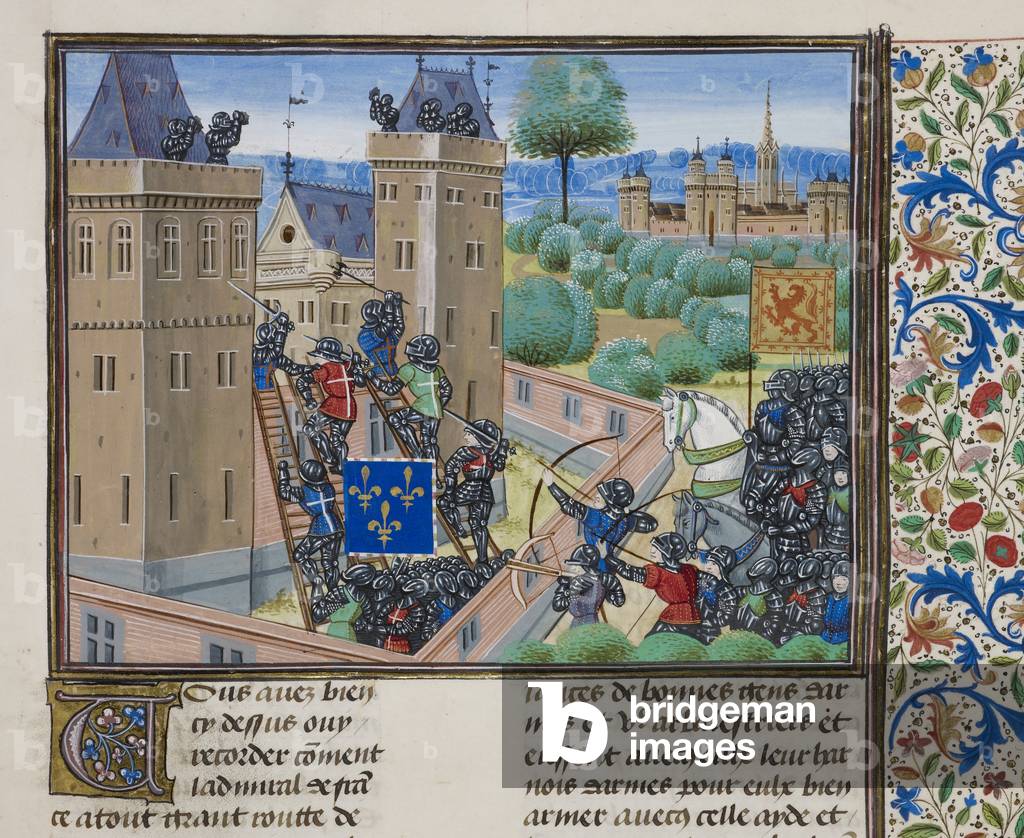 Vous auez bien
cy dessus ouy
recorder cōment
ladmiral de frā
ce atout grant routte de
de bonnes gens dar
et
leur har
nois darmes pour eulx bien
armer auecq celle ayde et
b bridgeman
images